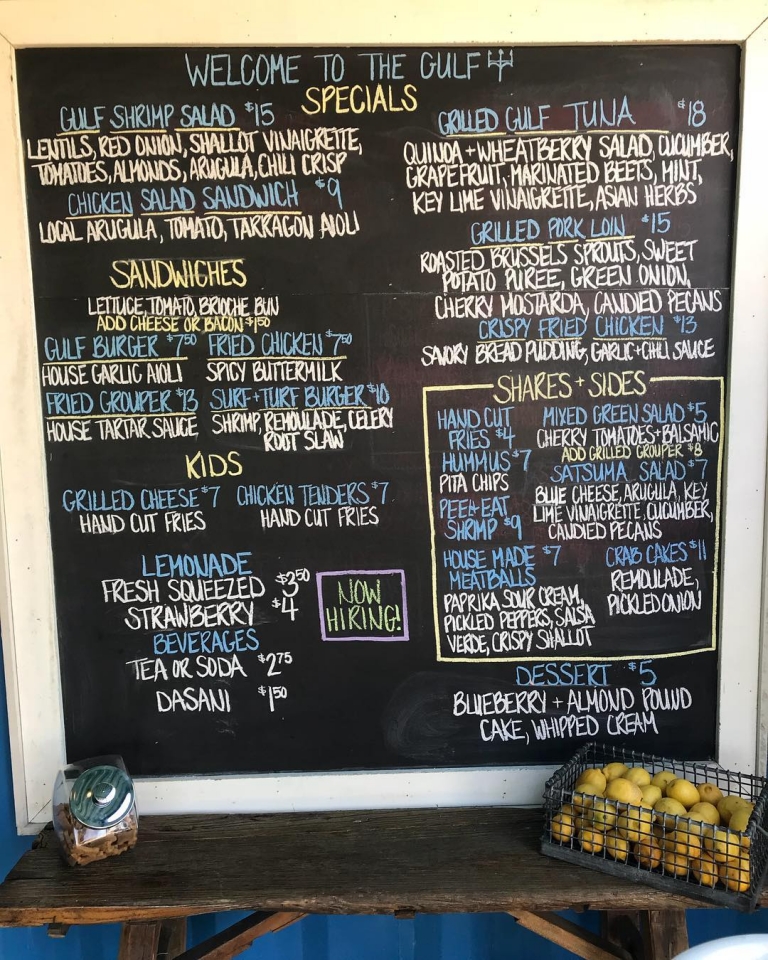 WELCOME TO THE GULF
SPECIALS
GULF SHRIMP SALAD $15
LENTILS, RED ONION, SHALLOT VINAIGRETTE,
TOMATOES, ALMONDS, ARUGULA, CHILI CRISP
CHICKEN SALAD SANDWICH $9
LOCAL ARUGULA, TOMATO, TARRAGON AIOLI
SANDWICHES
LETTUCE, TOMATO, BRIOCHE BUN
ADD CHEESE OR BACON $1.50
GULF BURGER $7.50 FRIED CHICKEN $7.50
HOUSE GARLIC AIOLI SPICY BUTTERMILK
FRIED GROUPER $13 SURF+TURF BURGER $10
HOUSE TARTAR SAUCE SHRIMP, REMOULADE, CELERY
ROOT SLAW
KIDS
GRILLED CHEESE $7 CHICKEN TENDERS $7
HAND CUT FRIES HAND CUT FRIES
LEMONADE
FRESH SQUEEZED $3.50
STRAWBERRY $4
BEVERAGES
TEA OR SODA $2.75
DASANI $1.50
NOW
HIRING!
GRILLED GULF TUNA $18
QUINOA + WHEATBERRY SALAD, CUCUMBER,
GRAPEFRUIT, MARINATED BEETS, MINT,
KEY LIME VINAIGRETTE, ASIAN HERBS
GRILLED PORK LOIN $15
ROASTED BRUSSELS SPROUTS, SWEET
POTATO PUREE, GREEN ONION,
CHERRY MOSTARDA, CANDIED PECANS
CRISPY FRIED CHICKEN $13
SAVORY BREAD PUDDING, GARLIC+CHILI SAUCE
SHARES + SIDES
HAND CUT
FRIES $4
HUMMUS $7
PITA CHIPS
PEEL+EAT
SHRIMP $9
HOUSE MADE $7
MEATBALLS
PAPRIKA SOUR CREAM,
PICKLED PEPPERS, SALSA
VERDE, CRISPY SHALLOT
MIXED GREEN SALAD $5
CHERRY TOMATOES+BALSAMIC
ADD GRILLED GROUPER $8
SATSUMA SALAD $7
BLUE CHEESE, ARUGULA, KEY
LIME VINAIGRETTE, CUCUMBER,
CANDIED PECANS
CRAB CAKES $11
REMOULADE,
PICKLED ONION
DESSERT $5
BLUEBERRY + ALMOND POUND
CAKE, WHIPPED CREAM